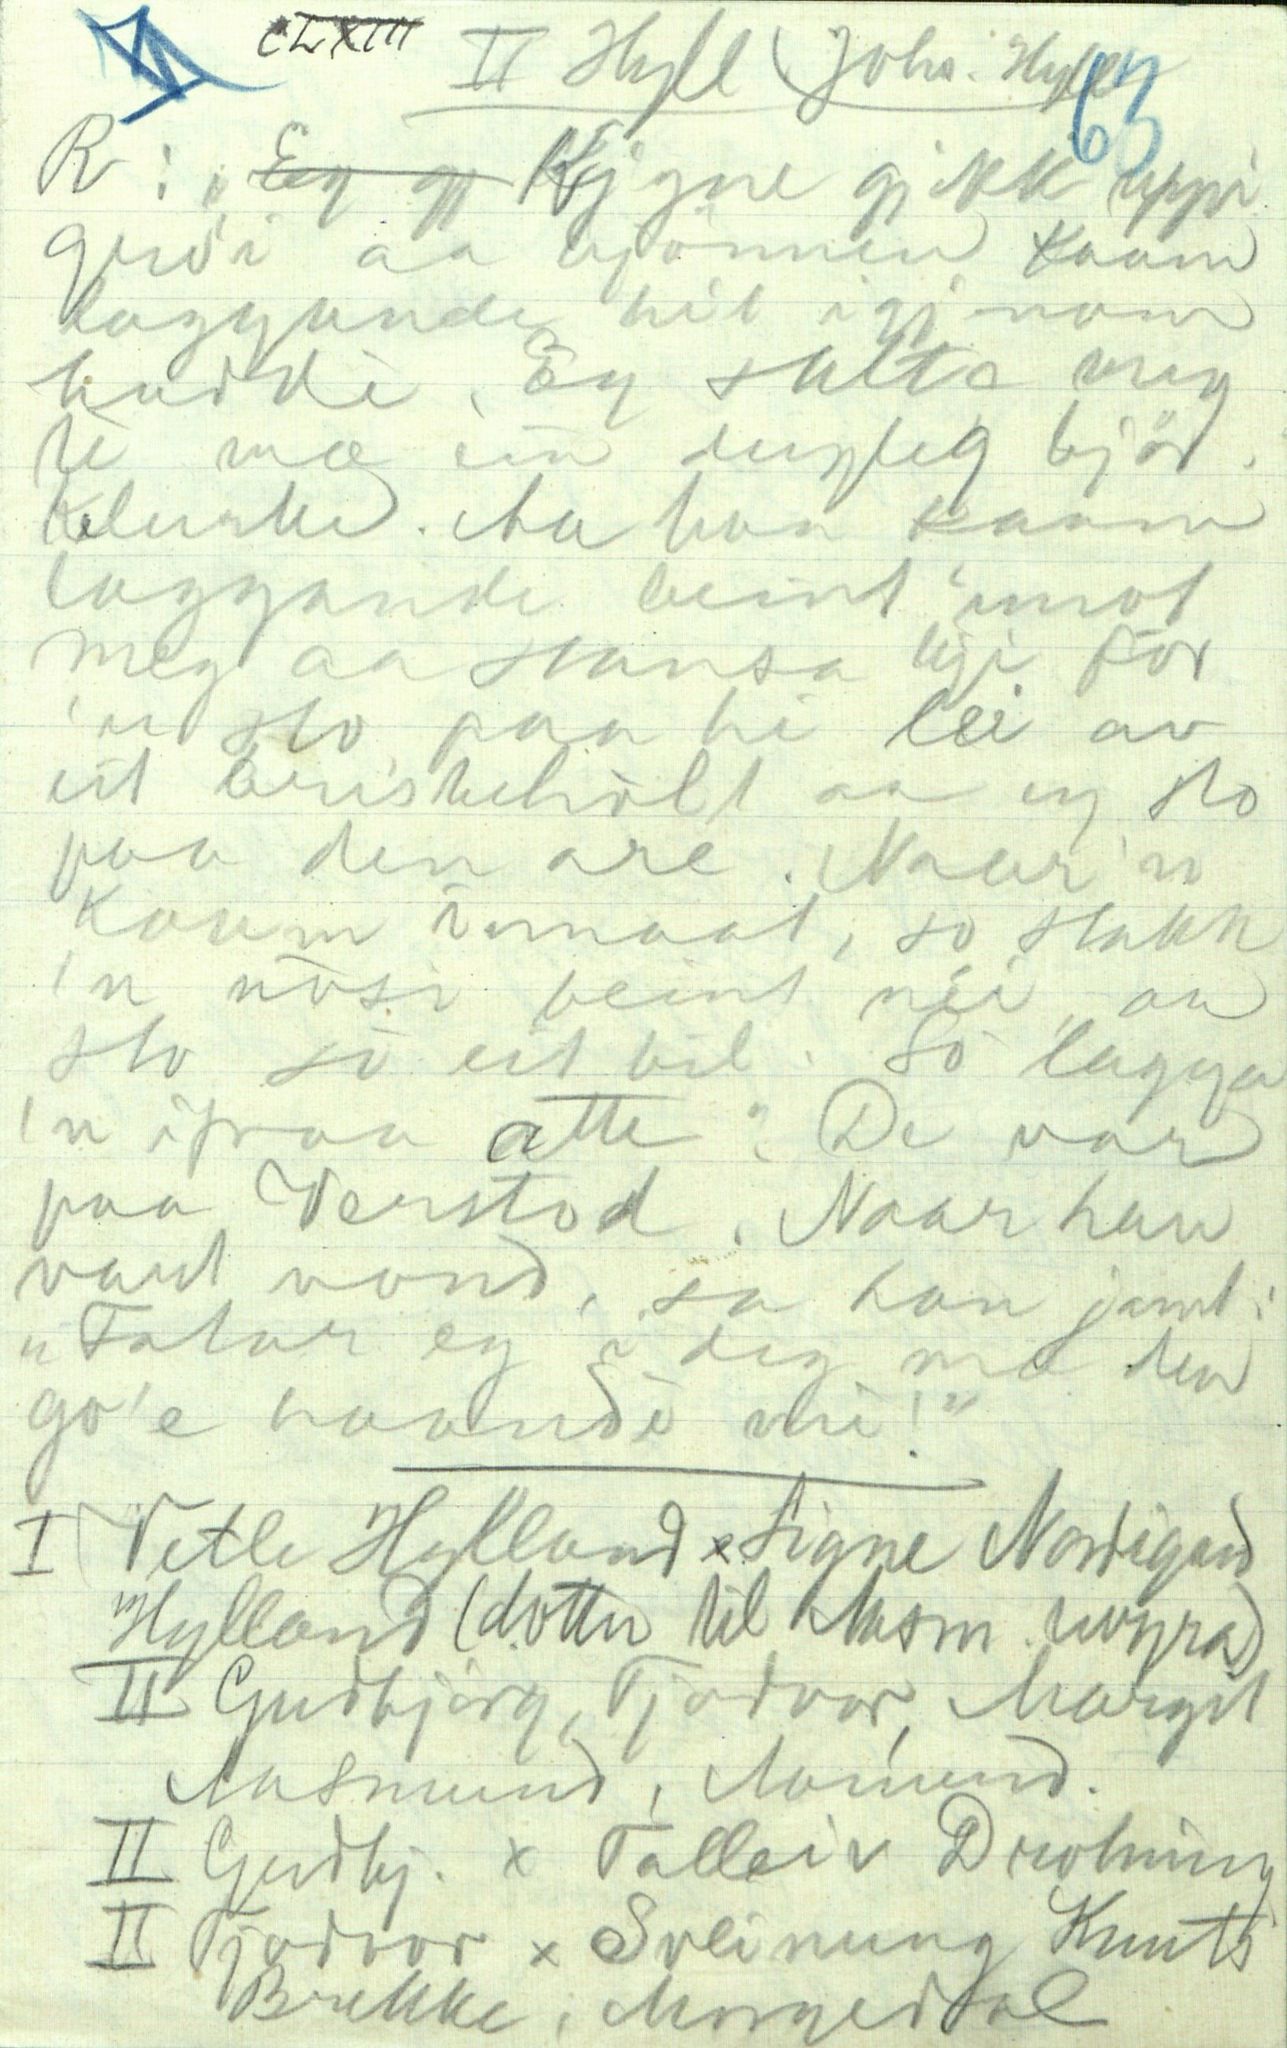 CLXIII II Hyll (Joh. Hyll 63
R: „Eg gj Kjyne gjikk uppi
gurdi aa bjönnen kaam
laggande hit igjönom
haddè. Eg stilte meg
te mæ ein dugleg bjør-
keklurke. Aa han kaam
laggande beint imot
meg aa stansa kji för
'n sto paa hi lei av
eit briskehölt aa eg sto
paa den are. Naar'n
kaam imaat, so stakk
'n nòsi beint néi, aa
sto sò eit bil. Sò lagga
'n ifraa atte". De var
paa Verstod. Naar han
vart vond, sa han jamt:
„Takar eg i deg mæ den
go'e haandè mi!"
I Vetle Hylland x Signe Nordigard
Hylland (dotter til Aasm.
II Gudbjörg, Tjodvor, Margit
Aasmund, Aamund.
II Gudbj. x Talleiv Drotning
II Tjodvor x Sveinung Knuts
Brekke, Morgedal